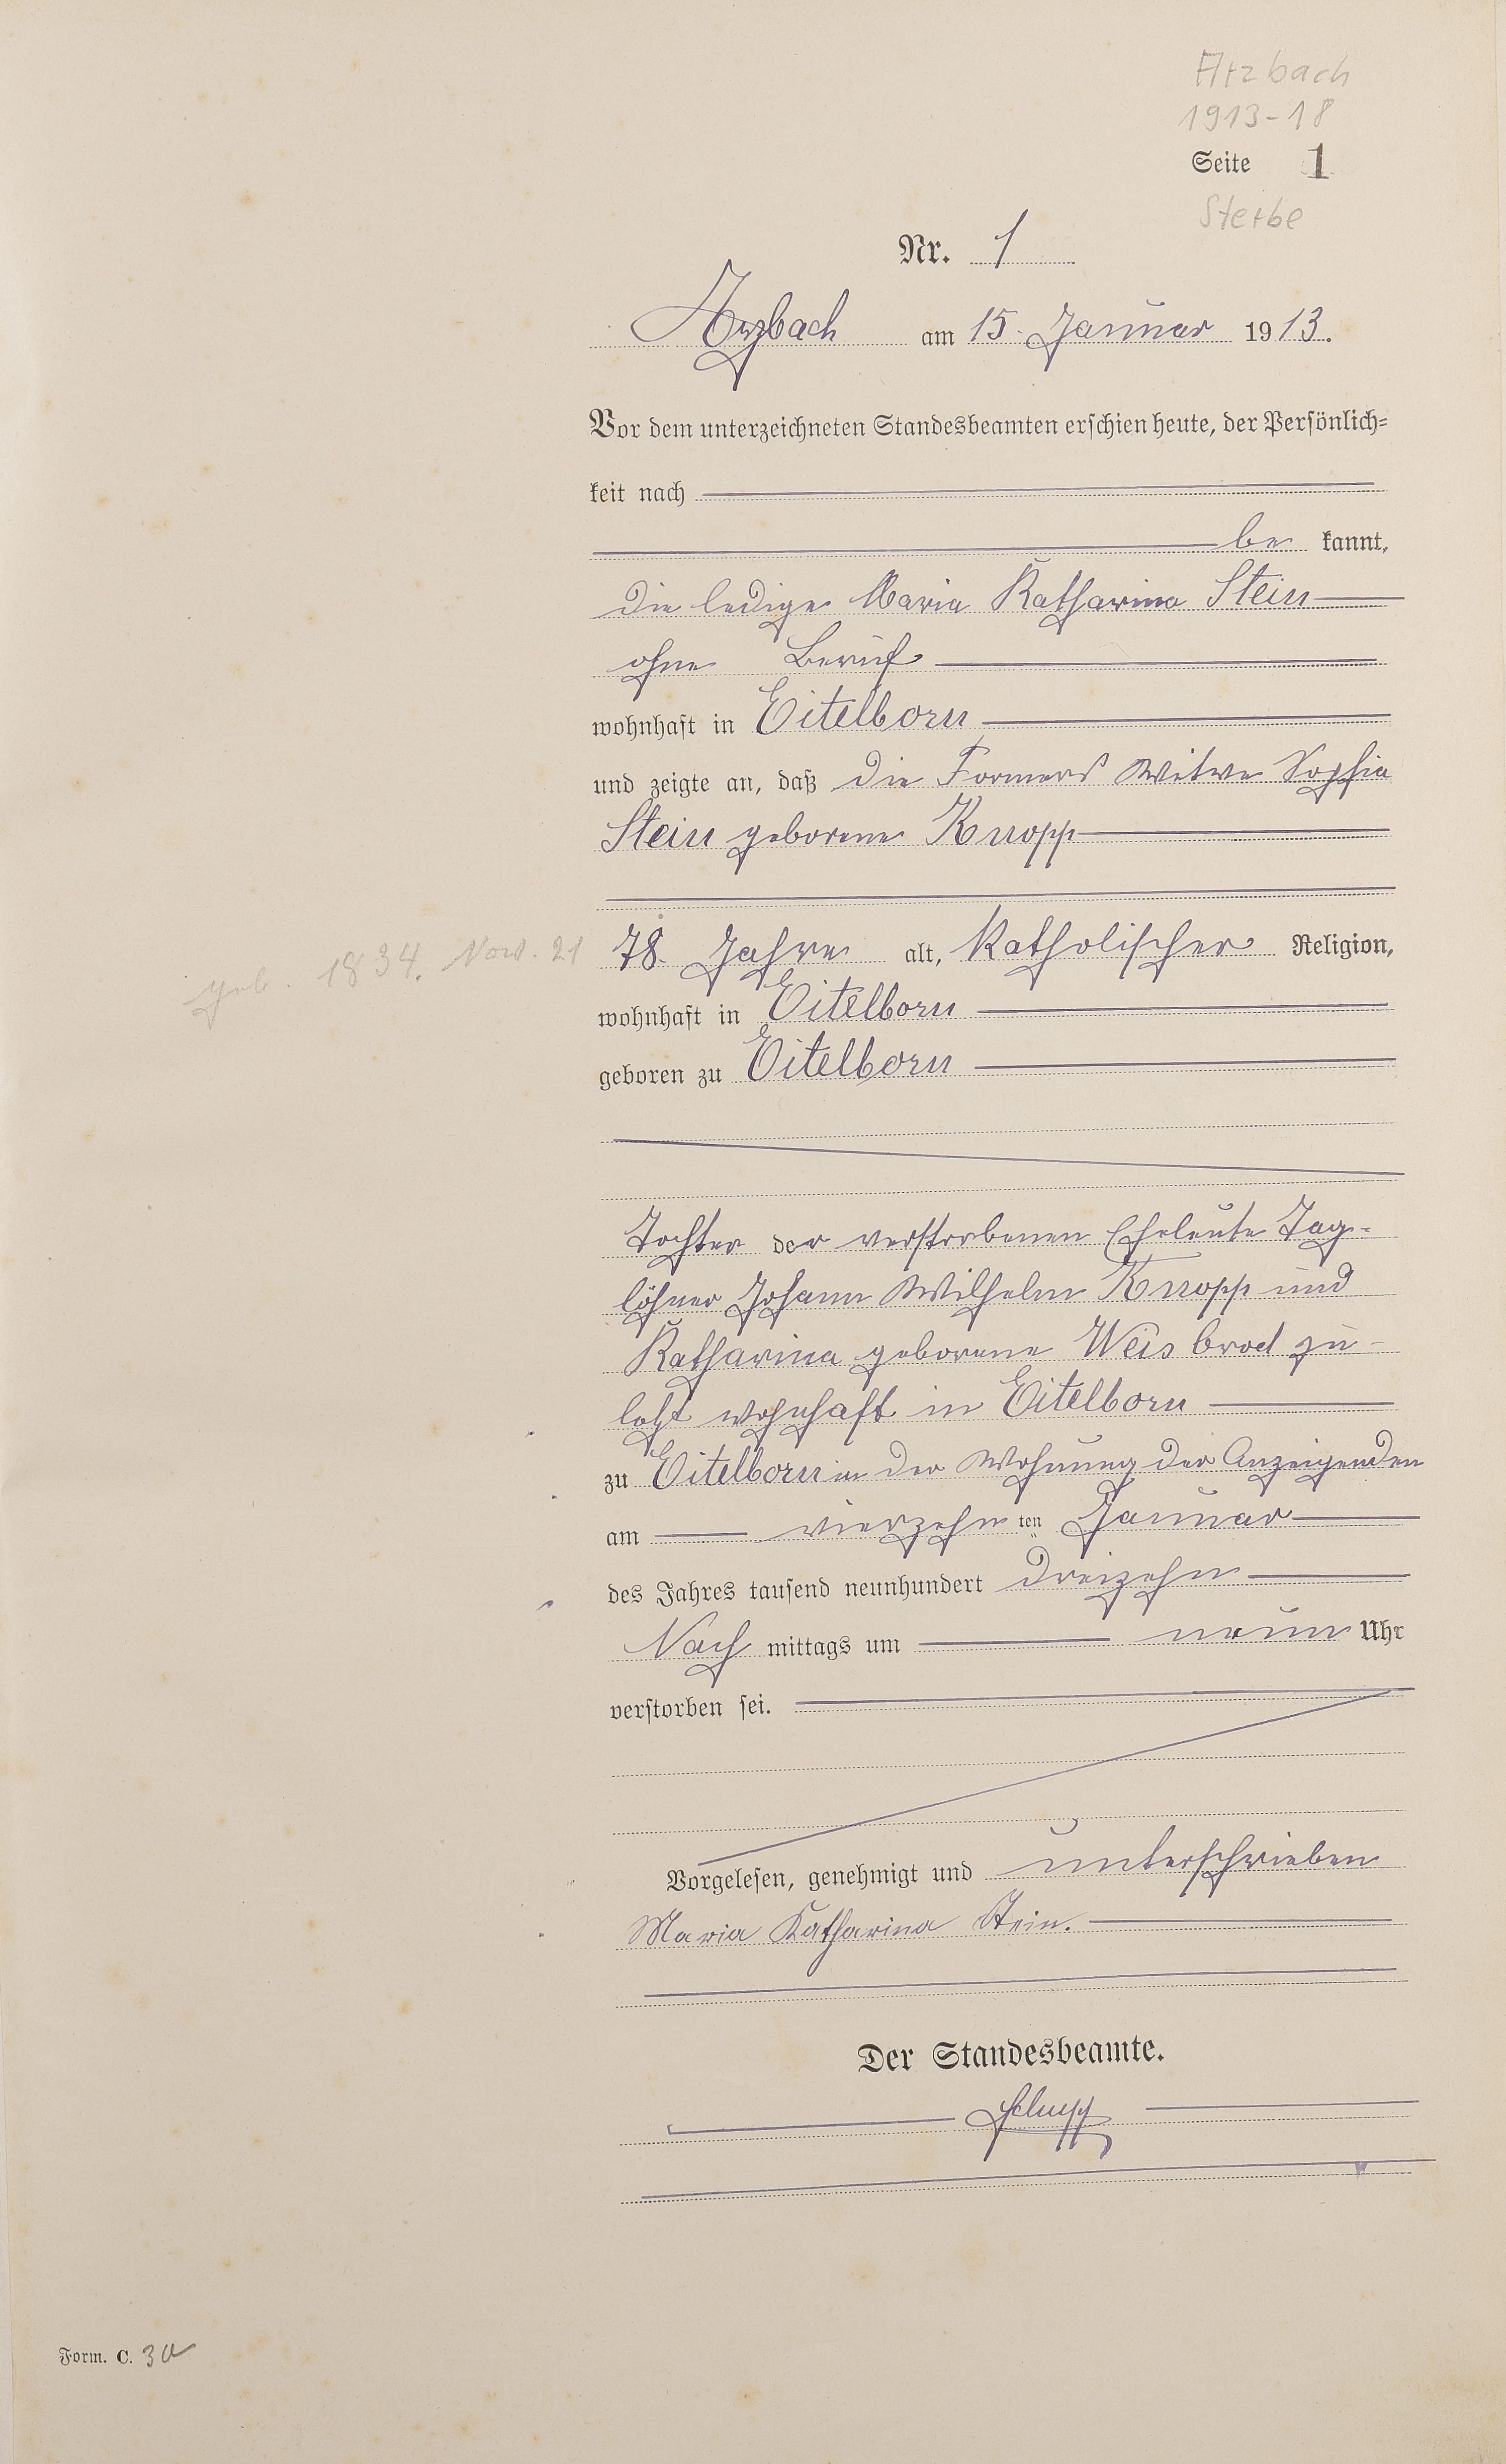 Arzbach
1913-18
Seite 1
Sterbe
Nr. 1
Arzbach am 15. Januar 1913.
Vor dem unterzeichneten Standesbeamten erschien heute, der Persönlich=
keit nach
be kannt,
die ledige Maria Katharina Stein
ohne Beruf
wohnhaft in Eitelborn
und zeigte an, daß die Formers Witwe Sophia
Stein geborene Knopp
geb. 1834. Nov. 21
78 Jahre alt, Katholischer Religion,
wohnhaft in Eitelborn
geboren zu Eitelborn
Tochter der verstorbenen Eheleute Tag-
löhner Johann Wilhelm Knopp und
Katharina geborene Weisbrod zu-
letzt wohnhaft in Eitelborn
zu Eitelborn in der Wohnung der Anzeigenden
am vierzehn ten Januar
des Jahres tausend neunhundert dreizehn
Nach mittags um neun Uhr
verstorben sei.
Vorgelesen, genehmigt und unterschrieben
Maria Katharina Stein.
Der Standesbeamte.
Form. C. 3a